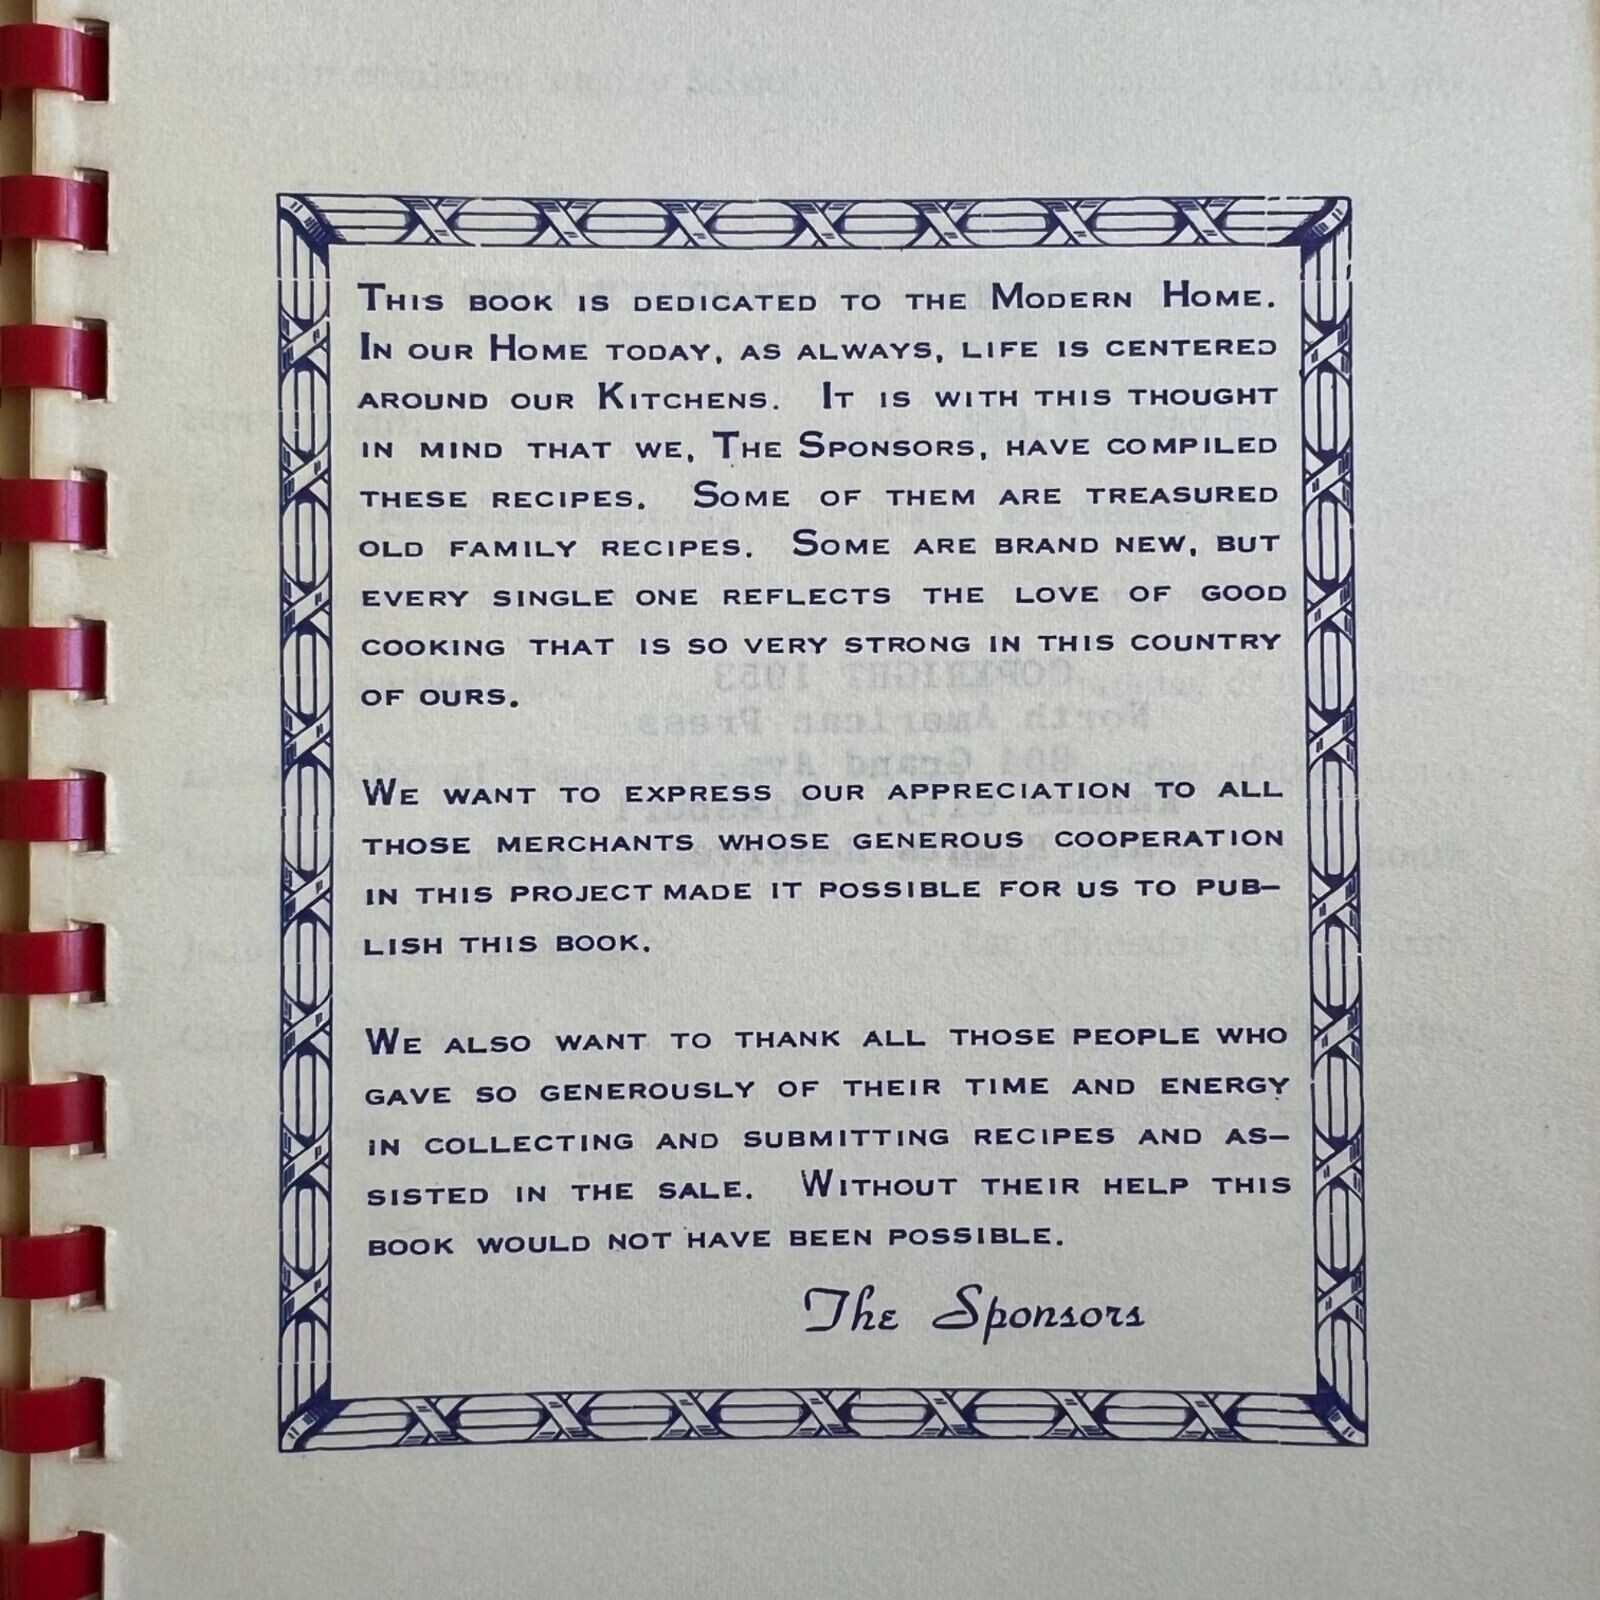 This book is dedicated to the Modern Home.
In our Home today, as always, life is centered
around our Kitchens. It is with this thought
in mind that we, The Sponsors, have compiled
these recipes. Some of them are treasured
old family recipes. Some are brand new, but
every single one reflects the love of good
cooking that is so very strong in this country
of ours.
We want to express our appreciation to all
those merchants whose generous cooperation
in this project made it possible for us to pub-
lish this book.
We also want to thank all those people who
gave so generously of their time and energy
in collecting and submitting recipes and as-
sisted in the sale. Without their help this
book would not have been possible.
The Sponsors
COPYRIGHT 1953
North American Press